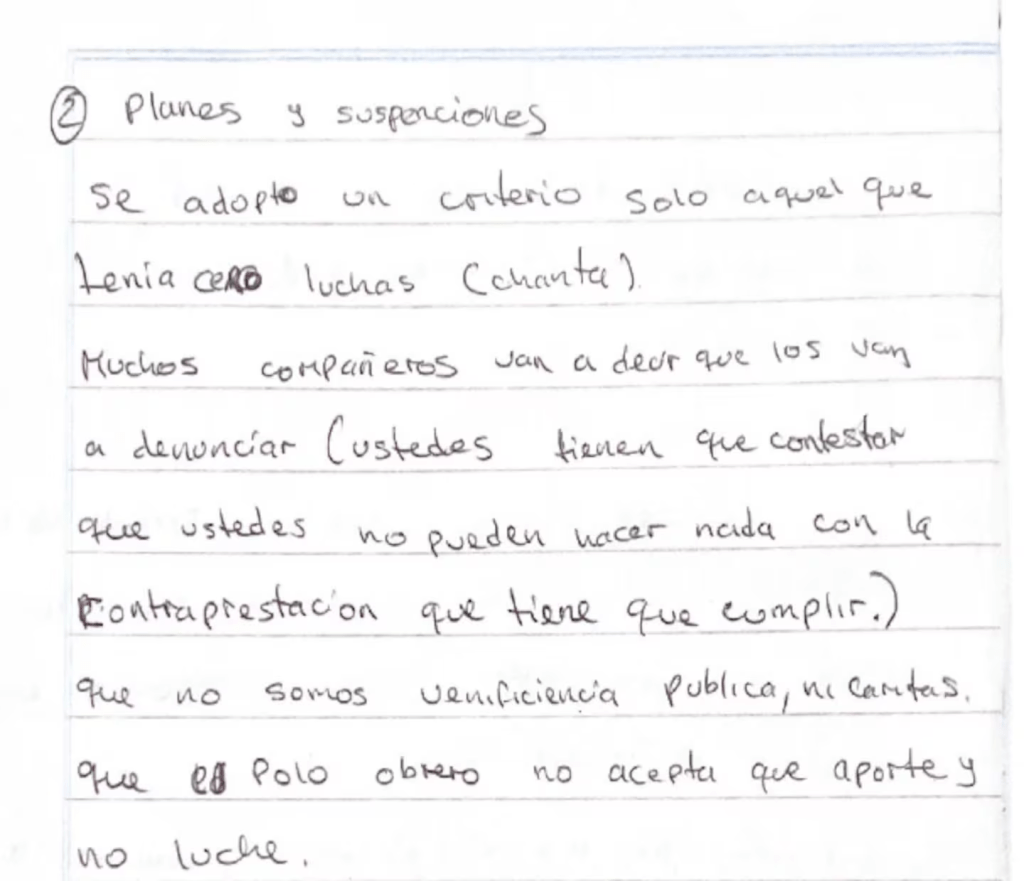 ② Planes y suspenciones
Se adopto un criterio solo aquel que
tenia cero luchas (chanta).
Muchos compañeros van a decir que los van
a denunciar (ustedes tienen que contestar
que ustedes no pueden hacer nada con la
Contraprestacion que tiene que cumplir.)
que no somos venificiencia publica, ni Caritas.
que el Polo obrero no acepta que aporte y
no luche.